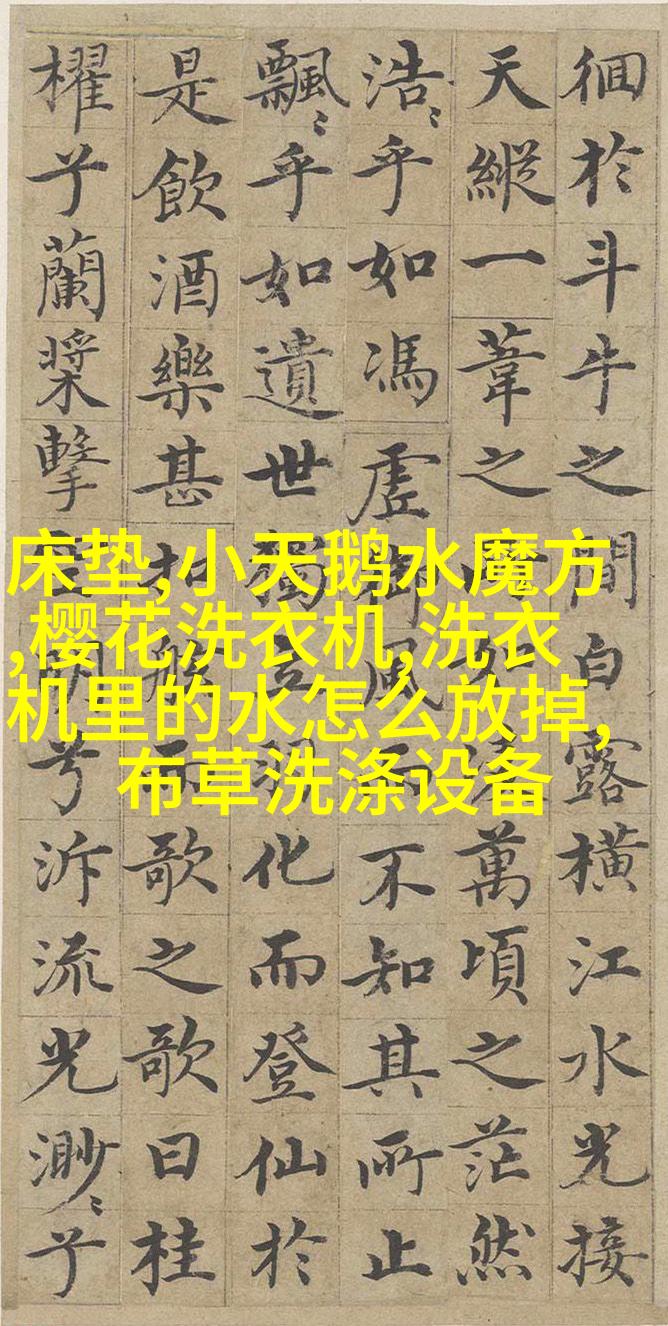 徊於斗牛之間白露橫江水光接
天縱一葦之如萬頃之茫然
浩〻乎如馮虛御風而不知其所止
飄〻乎如遺世獨立羽化而登仙於
是飲酒樂甚扣舷而歌之歌曰桂
櫂兮蘭槳擊明兮泝流光渺〻兮
床垫,小天鹅水魔方
,樱花洗衣机,洗衣
机里的水怎么放掉,
布草洗涤设备